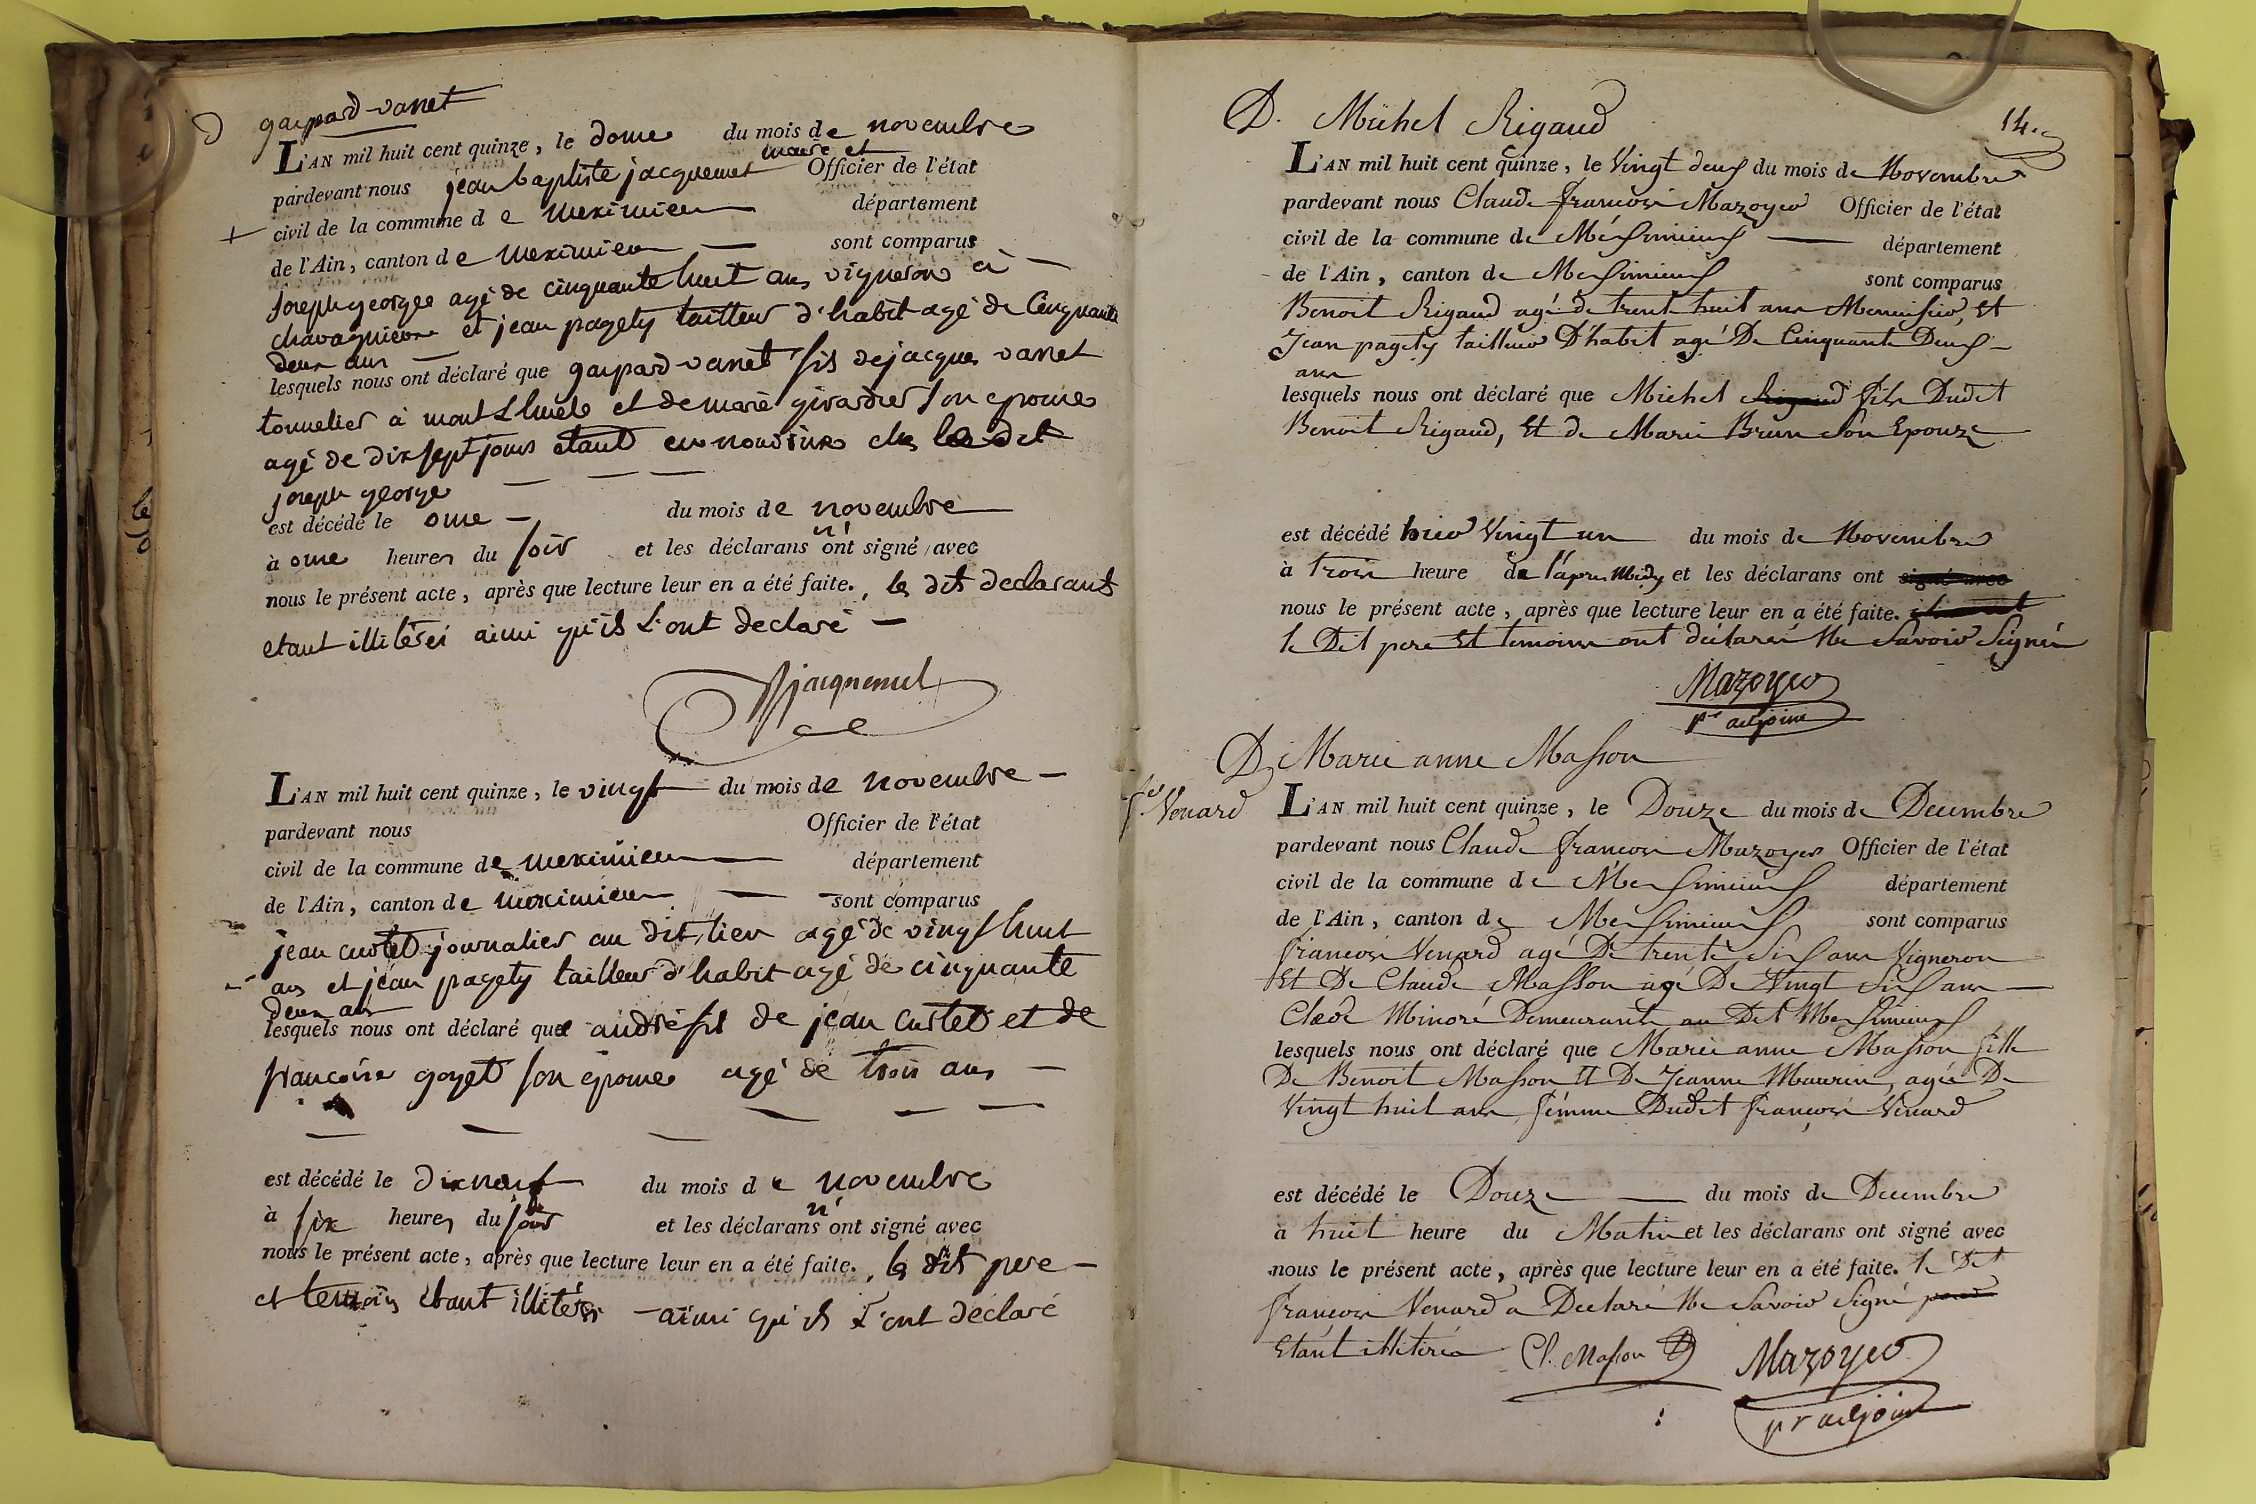 D gaspard vanet
L'AN mil huit cent quinze, le dome du mois de novembre
maire et
pardevant nous jean baptiste jacquemet Officier de l'état
civil de la commune de meximieu département
de l'Ain, canton de meximieu sont comparus
Joseph george agé de cinquante huit ans vigneron a
chavagnieu et jean pagety tailleur d'habit agé de Cinquante
deux ans
lesquels nous ont déclaré que gaspard vanet fils de jacque vanet
tonnelier a mont Luele et de marie girardier son epouse
agé de dix sept jours etant en nourrice ches le dit
joseph george
est décédé le onze du mois de novembre
n'
à onze heures du soir et les déclarans ont signé avec
nous le présent acte, après que lecture leur en a été faite. les dits declarants
etant illiterés ainsi qu'ils L'ont declaré
Jacquemet
L'AN mil huit cent quinze, le vingt du mois de novembre
pardevant nous Officier de l'état
civil de la commune de meximieu département
de l'Ain, canton de meximieu sont comparus
jean curtet journalier au dit lieu agé de vingt huit
ans et jean pagety tailleur d'habit agé de cinquante
deux ans
lesquels nous ont déclaré que andré fils de jean curtet et de
francoise goyet son épouse agé de trois ans
est décédé le dix neuf du mois de novembre
n'
à six heures du soir et les déclarans ont signé avec
nous le présent acte, après que lecture leur en a été faite. les dits pere
et temoin etant illiterés ainsi qu'ils L'ont déclaré
14.
D. Michel Rigaud
L'AN mil huit cent quinze, le Vingt deux du mois de Novembre
pardevant nous Claude François Mazoyer Officier de l'état
civil de la commune de Meximieux département
de l'Ain, canton de Meximieux sont comparus
Benoit Rigaud agé de trente huit ans Menuisier, Et
Jean pagety tailleur D'habit agé De Cinquante Deux
ans
lesquels nous ont déclaré que Michel Rigaud fils Dudit
Benoit Rigaud, Et de Marie Brun Son Epouze
est décédé hier Vingt un du mois de Novembre
à trois heure de l'apres Midy et les déclarans ont signé avec
nous le présent acte, après que lecture leur en a été faite.
le Dit pere Et temoins ont déclarés Ne Savoir Signer
Mazoyer
pr adjoint
D. Marie anne Masson
fe Venard
L'AN mil huit cent quinze, le Douze du mois de Decembre
pardevant nous Claude François Mazoyer Officier de l'état
civil de la commune de Meximieux département
de l'Ain, canton de Meximieux sont comparus
François Venard agé De trente Six ans Vigneron
Et De Claude Masson agé De Vingt Six ans
Minoré Demeurants au Dit Meximieux
lesquels nous ont déclaré que Marie anne Masson fille
De Benoit Masson Et De Jeanne Maurin, agée De
Vingt huit ans, fémme Dudit François Venard
est décédé le Douze du mois de Decembre
à huit heure du Matin et les déclarans ont signé avec
nous le présent acte, après que lecture leur en a été faite. le Dit
François Venard a Declaré Ne Savoir Signé
Etant illiteré Cl. Masson Mazoyer
pr adjoint